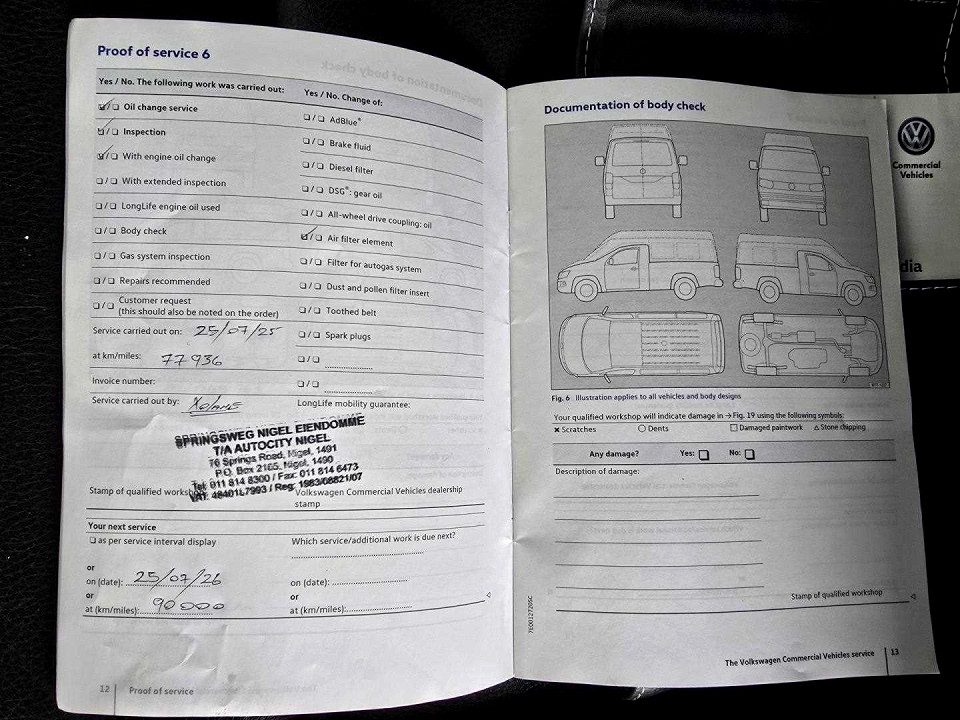 Proof of service 6
Yes / No. The following work was carried out:
☑/☐ Oil change service
☑/☐ Inspection
☑/☐ With engine oil change
☐/☐ With extended inspection
☐/☐ LongLife engine oil used
☐/☐ Body check
☐/☐ Gas system inspection
☐/☐ Repairs recommended
☐/☐ Customer request
(this should also be noted on the order)
Service carried out on: 25/07/25
at km/miles: 77936
Invoice number:
Service carried out by:
Yes / No. Change of:
☐/☐ AdBlue®
☐/☐ Brake fluid
☐/☐ Diesel filter
☐/☐ DSG®: gear oil
☐/☐ All-wheel drive coupling: oil
☑/☐ Air filter element
☐/☐ Filter for autogas system
☐/☐ Dust and pollen filter insert
☐/☐ Toothed belt
☐/☐ Spark plugs
☐/☐
☐/☐
LongLife mobility guarantee:
SPRINGSWEG NIGEL EIENDOMME
T/A AUTOCITY NIGEL
76 Springs Road, Nigel, 1491
P.O. Box 2165, Nigel, 1490
Tel: 011 814 8300 / Fax: 011 814 6473
VAT: / Reg: 1983/08821/07
Stamp of qualified workshop
Volkswagen Commercial Vehicles dealership
stamp
Your next service
☐ as per service interval display
or
on (date): 25/07/26
or
at (km/miles): 90000
Which service/additional work is due next?
on (date):
or
at (km/miles):
12 Proof of service
Documentation of body check
Fig. 6 Illustration applies to all vehicles and body designs
Your qualified workshop will indicate damage in → Fig. 19 using the following symbols:
✕ Scratches ○ Dents ☐ Damaged paintwork △ Stone chipping
Any damage? Yes: ☐ No: ☐
Description of damage:
Stamp of qualified workshop
7E0012720SC
The Volkswagen Commercial Vehicles service 13
Commercial
Vehicles
dia